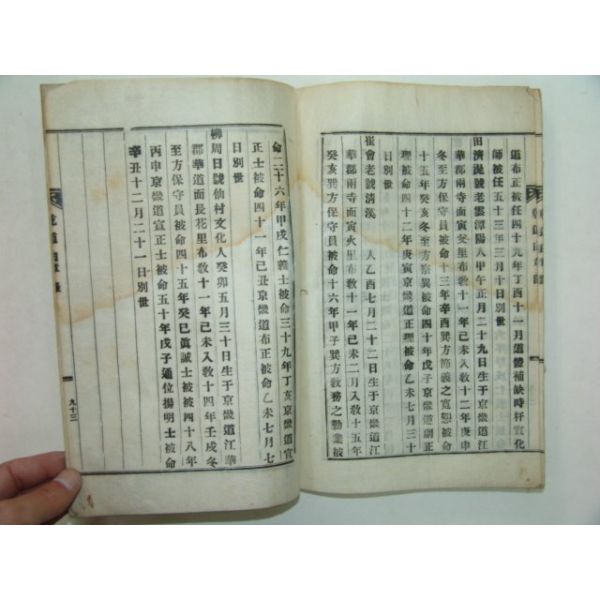 道布正被任四十九年丁酉十二月道體補缺時秤宣化
師被任五十三年三月十日別世
田濟泥號老雲潭陽人甲午正月二十九日生于京畿道江
華郡兩寺面寅艾里布教十一年己未入教十二年庚申
冬至方保守員被命三十三年辛酉巽方簡義之寬恕被命
十五年癸亥冬至方察異被命四十年戊子京畿道副正
理被命四十二年庚寅京畿道正理被命乙未七月三十
日別世
崔會老號清漢 人乙酉七月二十二日生于京畿道江華
郡兩寺面寅火里布教十一年己未二月入教十五年
癸亥巽方保守員被命十六年甲子巽方教務之勤業被
命二十六年甲戌仁義士被命三十九年丁亥京畿道宣
正士被命四十一年己丑京畿道布正被命乙未七月七
日別世
柳周日號仙村文化人癸卯五月三十日生于京畿道江華
郡華道面長花里布教十一年己未入教十四年壬戌冬
至方保守員被命四十五年癸巳眞誠士被被四十八年
丙申京畿道宣正士被命五十年戊子通位揚明士被命
辛丑十二月二十一日別世
九十三